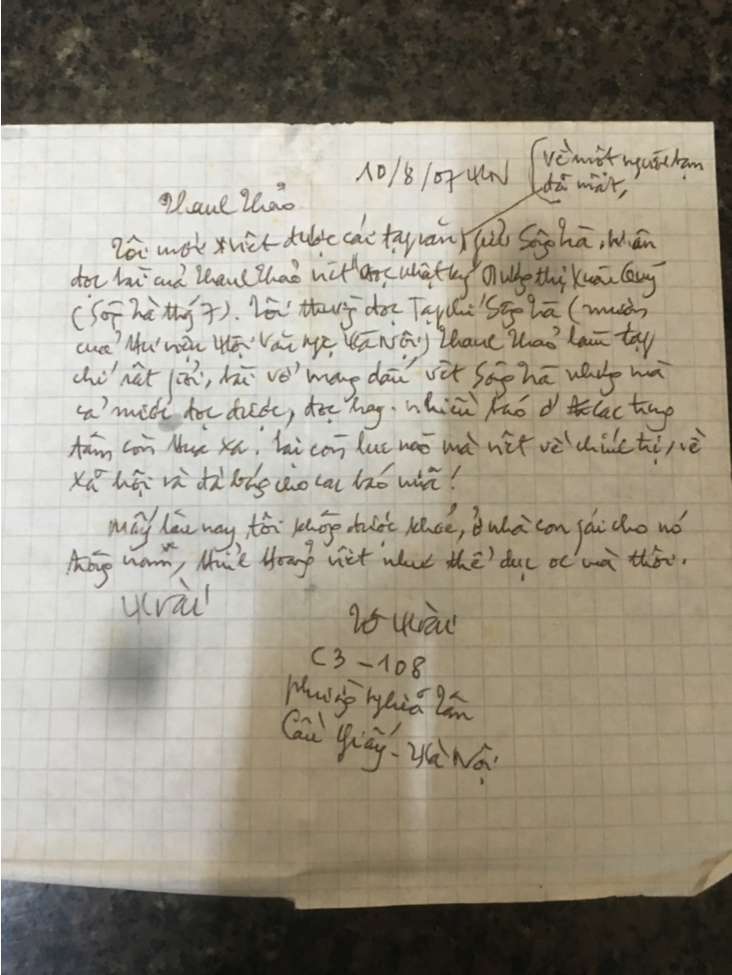 10/8/07 HN
về một người bạn
đã mất,
Thanh Thảo
Tôi mới viết được cái tạp văn, gửi Sông Trà, nhân
đọc bài của Thanh Thảo viết "đọc nhật ký Dương thị Xuân Quý
(Sông Trà tháng 7). Tôi thường đọc Tạp chí Sông Trà (mượn
của thư viện Hội Văn học Hà Nội) Thanh Thảo làm tạp
chí rất giỏi, bài vở mang dấu vết Sông Trà nhưng mà
cả nước đọc được, đọc hay. nhiều báo ở các trung
tâm còn thua xa. Lại còn lúc nào mà viết về chính trị, về
xã hội và đá bóng cho các báo nữa!
Mấy lâu nay, tôi không được khoẻ, ở nhà con gái cho nó
trông nom, thỉnh thoảng viết như thể dục óc mà thôi.
Hoài
Tô Hoài
C3-108
phường Nghĩa Tân
Cầu Giấy - Hà Nội